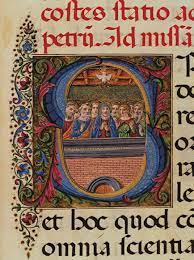 costes statio ad
petrũ. Ad missa
S
D
re
o
ri
et hoc quod co
omnia scientia